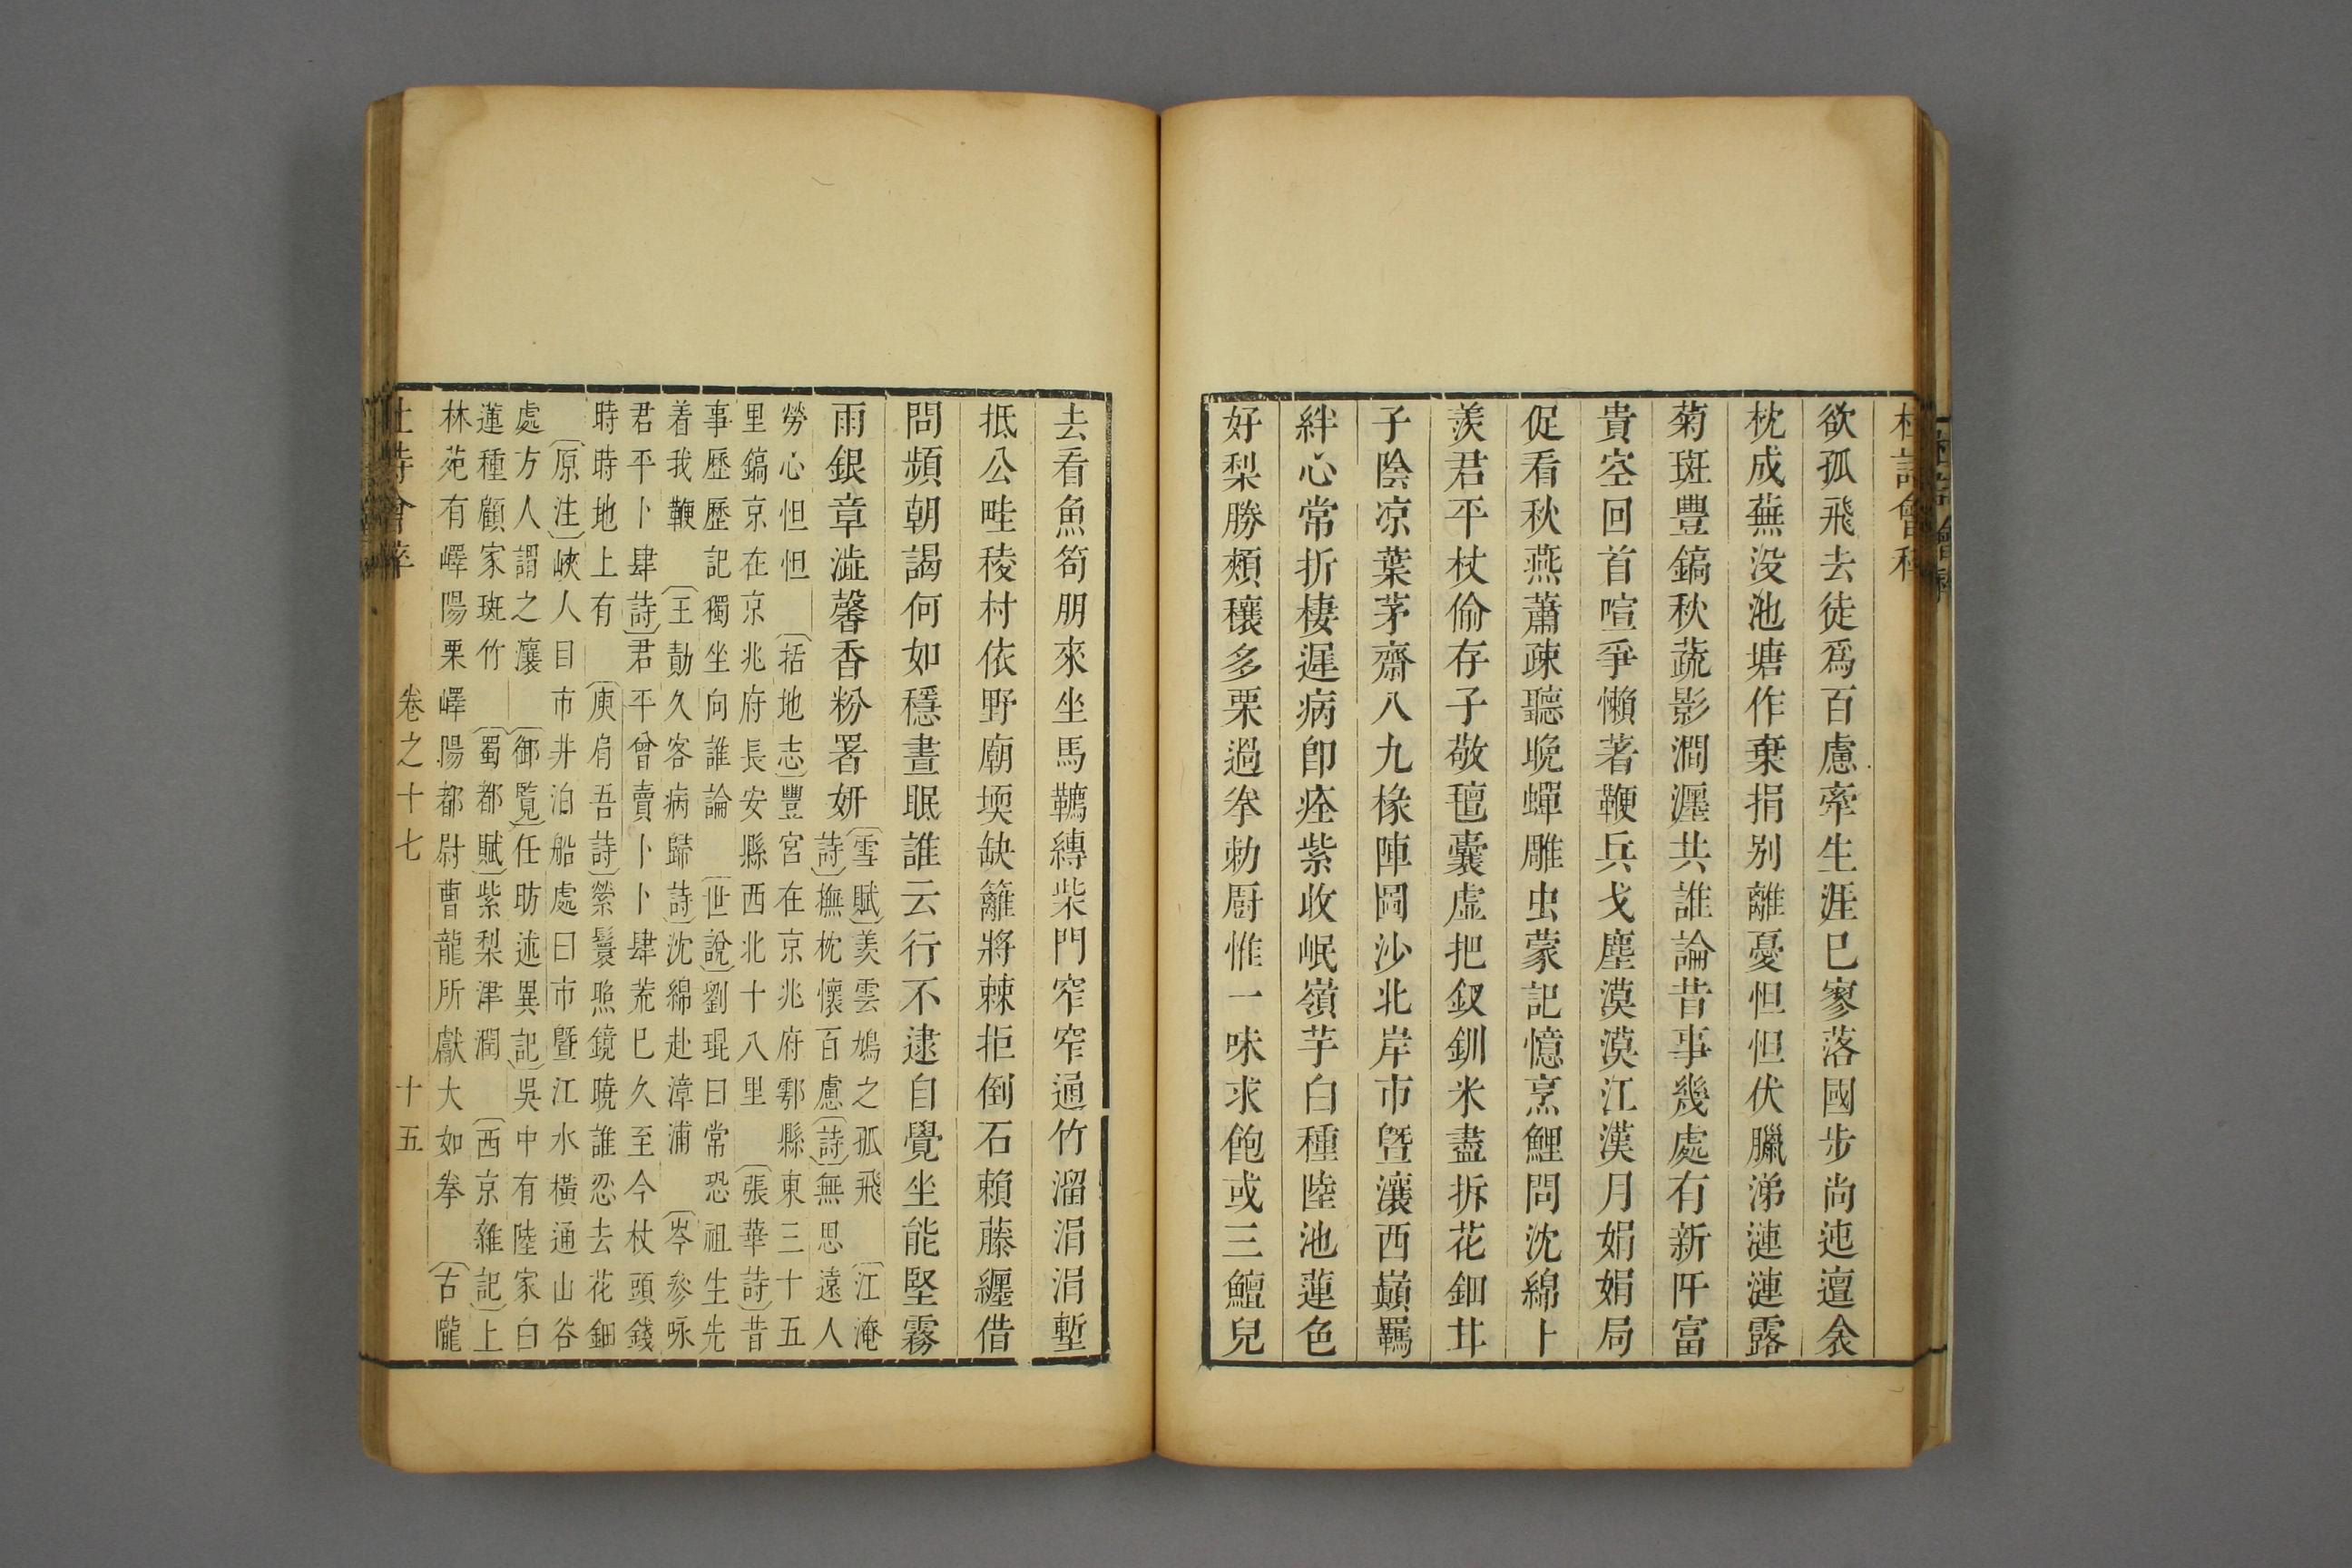 杜詩會稡
欲孤飛去徒爲百慮牽生涯巳寥落國步尚迍邅衾
枕成蕪没池塘作棄捐别離憂怛怛伏臘涕漣漣露
菊斑豐鎬秋蔬影澗瀍共誰論昔事幾處有新阡富
貴空回首喧爭懶著鞭兵戈塵漠漠江漢月娟娟局
促看秋燕蕭疎聽晚蟬雕虫蒙記憶烹鯉問沈綿卜
羨君平杖偷存子敬氊囊虛把釵釧米盡拆花鈿甘
子陰凉葉茅齋八九椽陣圖沙北岸市曁瀼西巔羇
絆心常折棲遲病卽痊紫收岷嶺芋白種陸池蓮色
好梨勝頰穰多栗過拳勅厨惟一味求飽或三鱣兒
去看魚笱朋來坐馬韉縳柴門窄窄通竹溜涓涓塹
抵公畦稜村依野廟堧缺籬將棘拒倒石賴藤纒借
問頻朝謁何如穩晝眠誰云行不逮自覺坐能堅霧
雨銀章澁馨香粉署妍
〔雪賦〕羨雲鳩之孤飛〔江淹
詩〕撫枕懷百慮〔詩〕無思遠人
勞心怛怛〔括地志〕豐宮在京兆府鄠縣東三十五
里鎬京在京兆府長安縣西北十八里〔張華詩〕昔
事歷歷記獨坐向誰論〔世說〕劉琨曰常恐祖生先
着我鞭〔王勣久客病歸詩〕沈綿赴漳浦〔岑參咏
君平卜肆詩〕君平曾賣卜卜肆荒巳久至今杖頭錢
時時地上有〔庾肩吾詩〕縈鬟照鏡曉誰忍去花鈿
〔原注〕峽人目市井泊船處曰市曁江水橫通山谷
處方人謂之瀼〔御覧〕任昉述異記〕吳中有陸家白
蓮種顧家斑竹〔蜀都賦〕紫梨津潤〔西京雜記〕上
林苑有嶧陽栗嶧陽都尉曹龍所獻大如拳〔古隴
杜詩會稡 卷之十七 十五